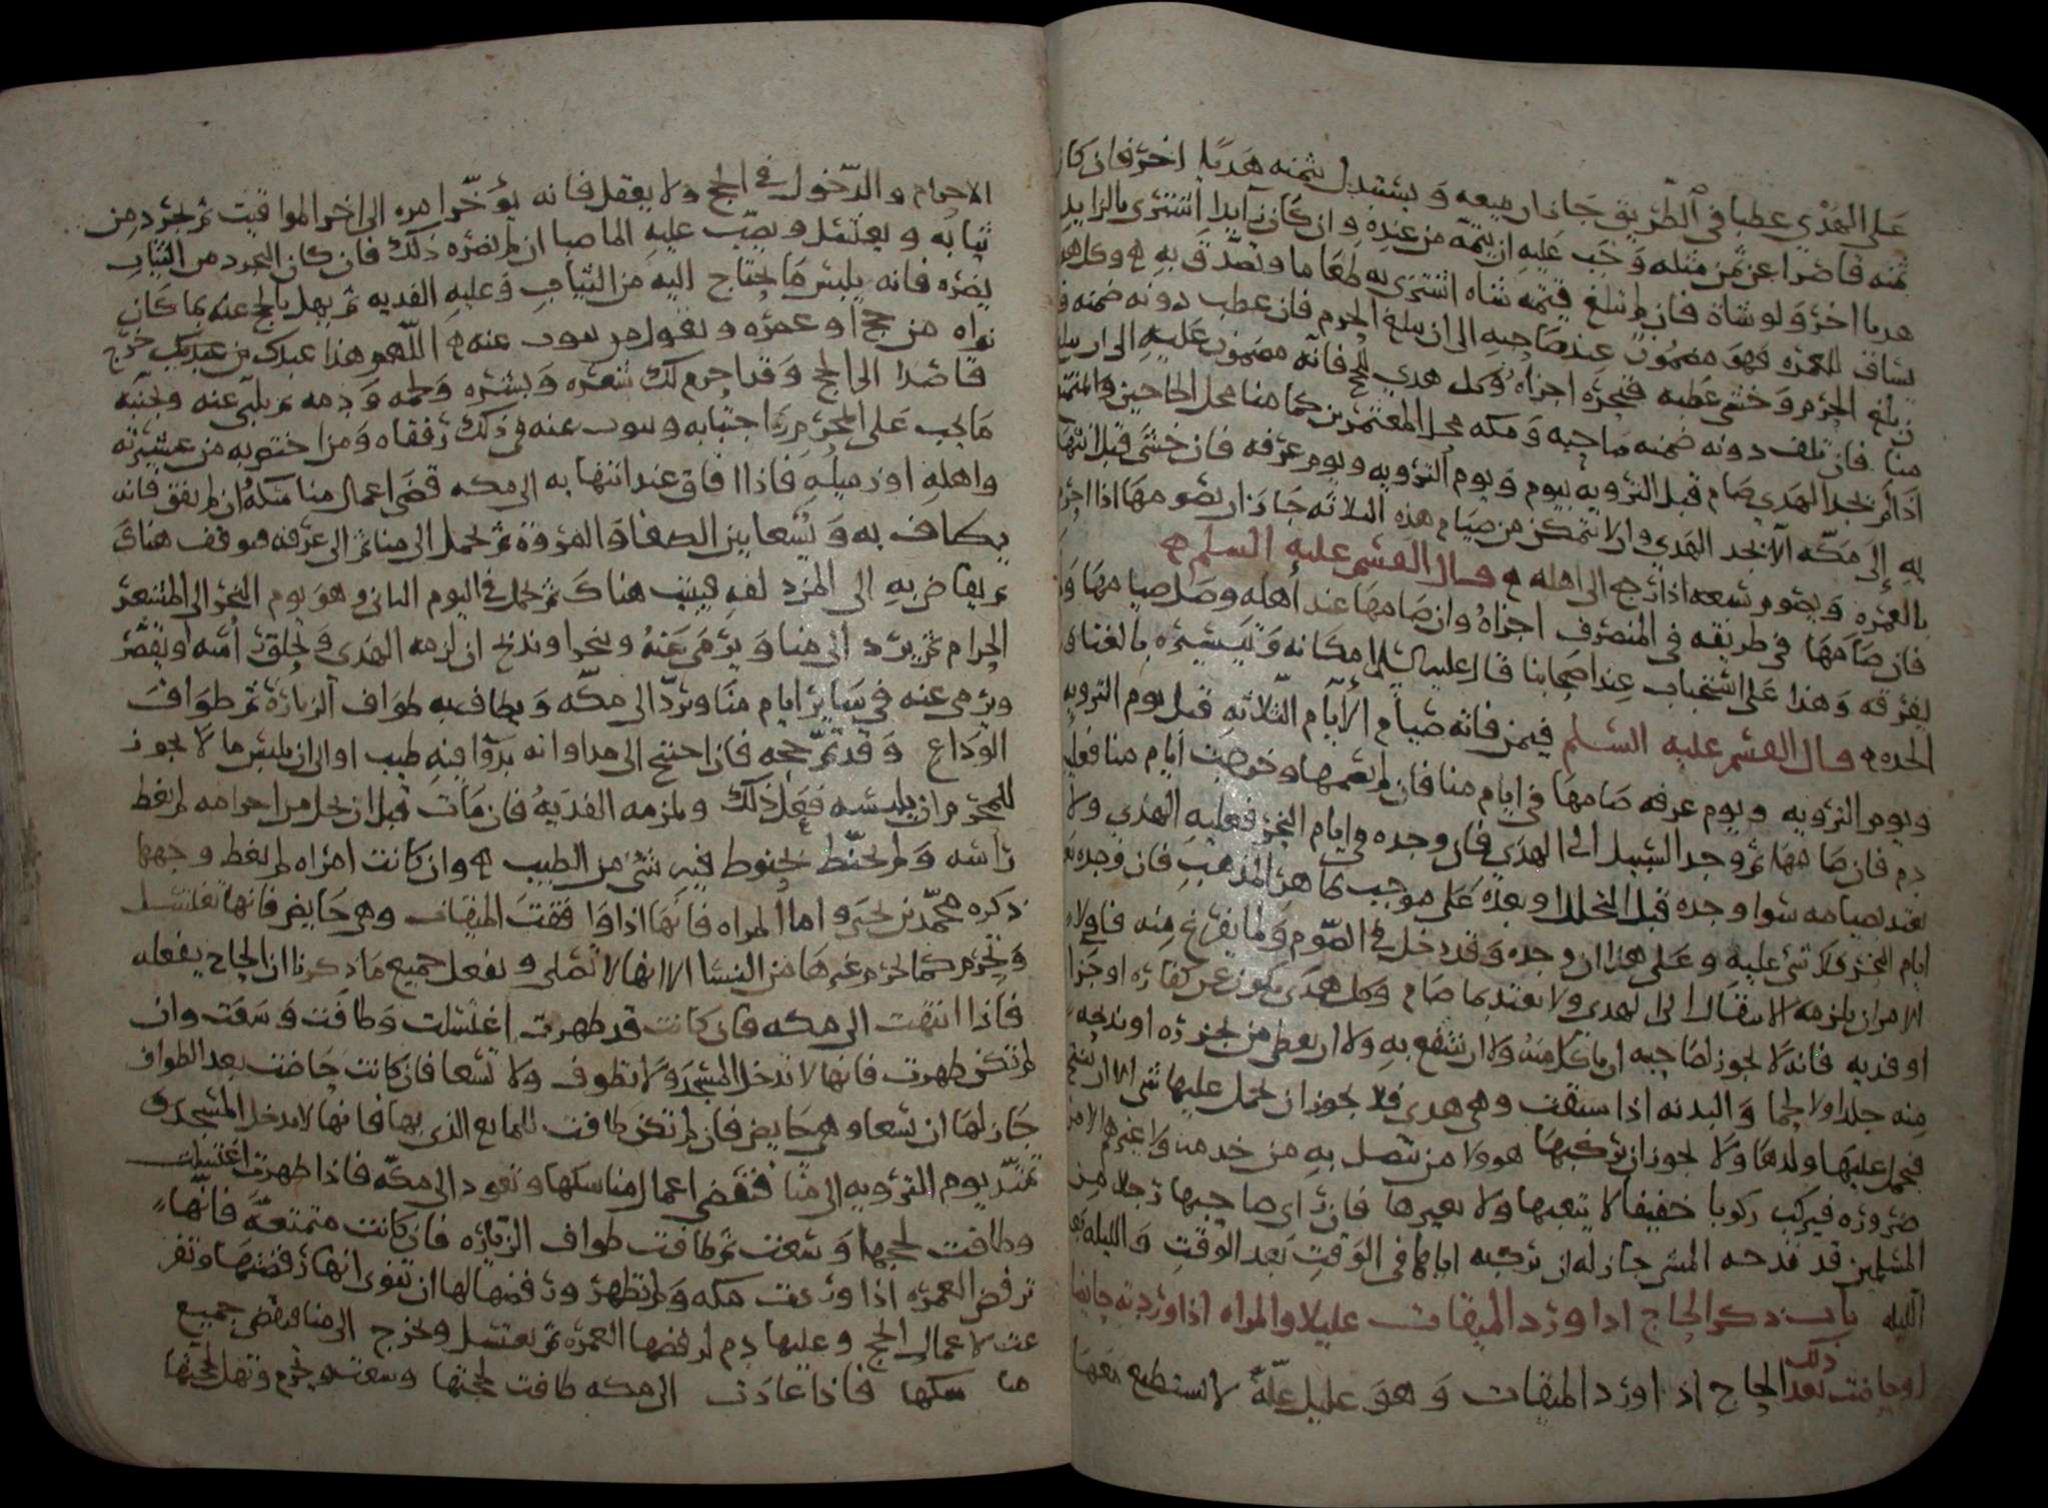 على الهدي عطبا في الطريق جاز ان يبيعه ويستبدل بثمنه هديا اخر فان كان
ثمنه قاصرا عن ثمن مثله وجب عليه ان يتمه من عنده وان كان زايدا اشترى بالزايد
هديا اخر ولو شاة فان لم تبلغ قيمته شاه اشترى به طعاما وتصدق به وكل هدي
يساق للعمره فهو مضمون عند صاحبه الى ان يبلغ الحرم فان عطب دونه ضمنه
ان بلغ الحرم وخشي عطبه فنحره اجزاه وكل هدي للحج فانه مضمون عليه الى ان يبلغ
منا فان تلف دونه ضمنه صاحبه ومكه محل المعتمرين كما منا محل الحاجين والمتمتع
اذا لم يجد الهدي صام قبل الترويه بيوم ويوم الترويه ويوم عرفه فان خشي قبل انتهايه
به الى مكه الا يجد الهدي وان لا يتمكن من صيام هذه الثلاثه جاز ان يصومها اذا احرم
بالعمره ويصوم سبعه اذا رجع الى اهله قال القسم عليه السلم
فان صامها في طريقه في المنصرف اجزاه وان صامها عند اهله وصل صيامها ولم
يفرقه وهذا على استحباب عند اصحابنا قال عليه السلم امكانه وتيسيره بالغنا و
الجده قال القسم عليه السلم فيمن فاته صيام الايام الثلاثه قبل يوم الترويه
ويوم الترويه ويوم عرفه صامها في ايام منا فان لم يصمها وخرجت ايام منا فعليه
دم فان صامها ثم وجد السبيل الى الهدي فان وجده في ايام النحر فعليه الهدي ولا
يعتد بصيامه سوا وجده قبل التحلل او بعده على موجب ظاهر المذهب فان وجده بعد
ايام النحر فلا شي عليه وعلى هذا ان وجده وقد دخل في الصوم ولما يفرغ منه فاولا
الامر ان يلزمه الانتقال الى الهدي ولا يعتد بما صام وكل هدي يكون عن كفاره او جزا
او فديه فانه لا يجوز لصاحبه ان ياكل منه ولا ان ينتفع به ولا ان يعطي من يجزره او يذبحه
منه جلدا ولا لحما والبدنه اذا سيقت وهي هدي فلا يجوز ان يحمل عليها شي الا ان تنتج
فيحمل عليها ولدها ولا يجوز ان يركبها هو ولا من يتصل به من خدمه ولا غيرهم الا من
ضروره فيركب ركوبا خفيفا لا يتعبها ولا يعيرها فان راى صاحبها رجلا من
المسلمين قد فدحه المشي جاز له ان يركبه اياها في الوقت بعد الوقت والليله بعد
الليله باب ذكر الحاج اذا ورد الميقات عليلا والمراه اذا وردته حايضا
او حاضت بعد ذلك الحاج اذا ورد الميقات وهو عليل علة لا يستطيع معها
الاحرام والدخول في الحج ولا يعقل فانه يؤخر امره الى اخر المواقيت ثم يجرد من
ثيابه ويغتسل ويصب عليه الما صبا ان لم يضره ذلك فان كان التجرد من الثياب
يضره فانه يلبس ما يحتاج اليه من الثياب وعليه الفديه ثم يهل بالحج عنه بما كان
نواه من حج او عمره ويقول من ينوب عنه اللهم هذا عبدك من عبيدك خرج
قاصدا الى الحج وقد احرم لك شعره وبشره ولحمه ودمه ثم يلبي عنه ويجنبه
ما يجب على المحرم اجتنابه وينوب عنه في ذلك رفقاه ومن اختص به من عشيرته
واهله او زميله فاذا افاق عند انتهايه الى مكه قضى اعمال مناسكه وان لم يفق فانه
يطاف به ويسعا بين الصفا والمروة ثم يحمل الى منا ثم الى عرفه فيوقف هناك
ثم يفاض به الى المزدلفه فيبيت هناك ثم يحمل في اليوم الثاني وهو يوم النحر الى المشعر
الحرام ثم يرد الى منا ويرمى عنه وينحر او يذبح ان لزمه الهدي ويحلق راسه او يقصر
ويرمى عنه في ساير ايام منا ويرد الى مكه ويطاف به طواف الزيارة ثم طواف
الوداع وقد تم حجه فان احتيج الى مداواته بدوا فيه طيب او الى ان يلبس ما لا يجوز
للمحرم ان يلبسه فعل ذلك ويلزمه الفديه فان مات قبل ان يحل من احرامه لم يغط
راسه ولم يحنط بحنوط فيه شي من الطيب وان كانت امراه لم يغط وجهها
ذكره محمد بن يحيى واما المراه فانها اذا وافت الميقات وهي حايض فانها تغتسل
وتحرم كما يحرم غيرها من النسا الا انها لا تصلي وتفعل جميع ما ذكرنا ان الحاج يفعله
فاذا انتهت الى مكه فان كانت قد طهرت اغتسلت وطافت وسعت وان
لم تكن طهرت فانها لا تدخل المسجد ولا تطوف ولا تسعا فان كانت حاضت بعد الطواف
جاز لها ان تسعا وهي حايض فان لم تكن طافت للمانع الذي بها فانها لا تدخل المسجد و
تمتد يوم الترويه الى منا فتقضي اعمال مناسكها وتعود الى مكه فاذا طهرت اغتسلت
وطافت لحجها وسعت ثم طافت طواف الزياره فان كانت متمتعه فانها
ترفض العمره اذا وردت مكه ولم تطهر ورفضها لها ان تنوي انها رفضتها وتفر
غت لاعمال الحج وعليها دم لرفضها العمره ثم تغتسل وتخرج الى منا فتقضي جميع
مناسكها فاذا عادت الى مكه طافت لحجتها وسعت وتحرم وتهل لحجتها